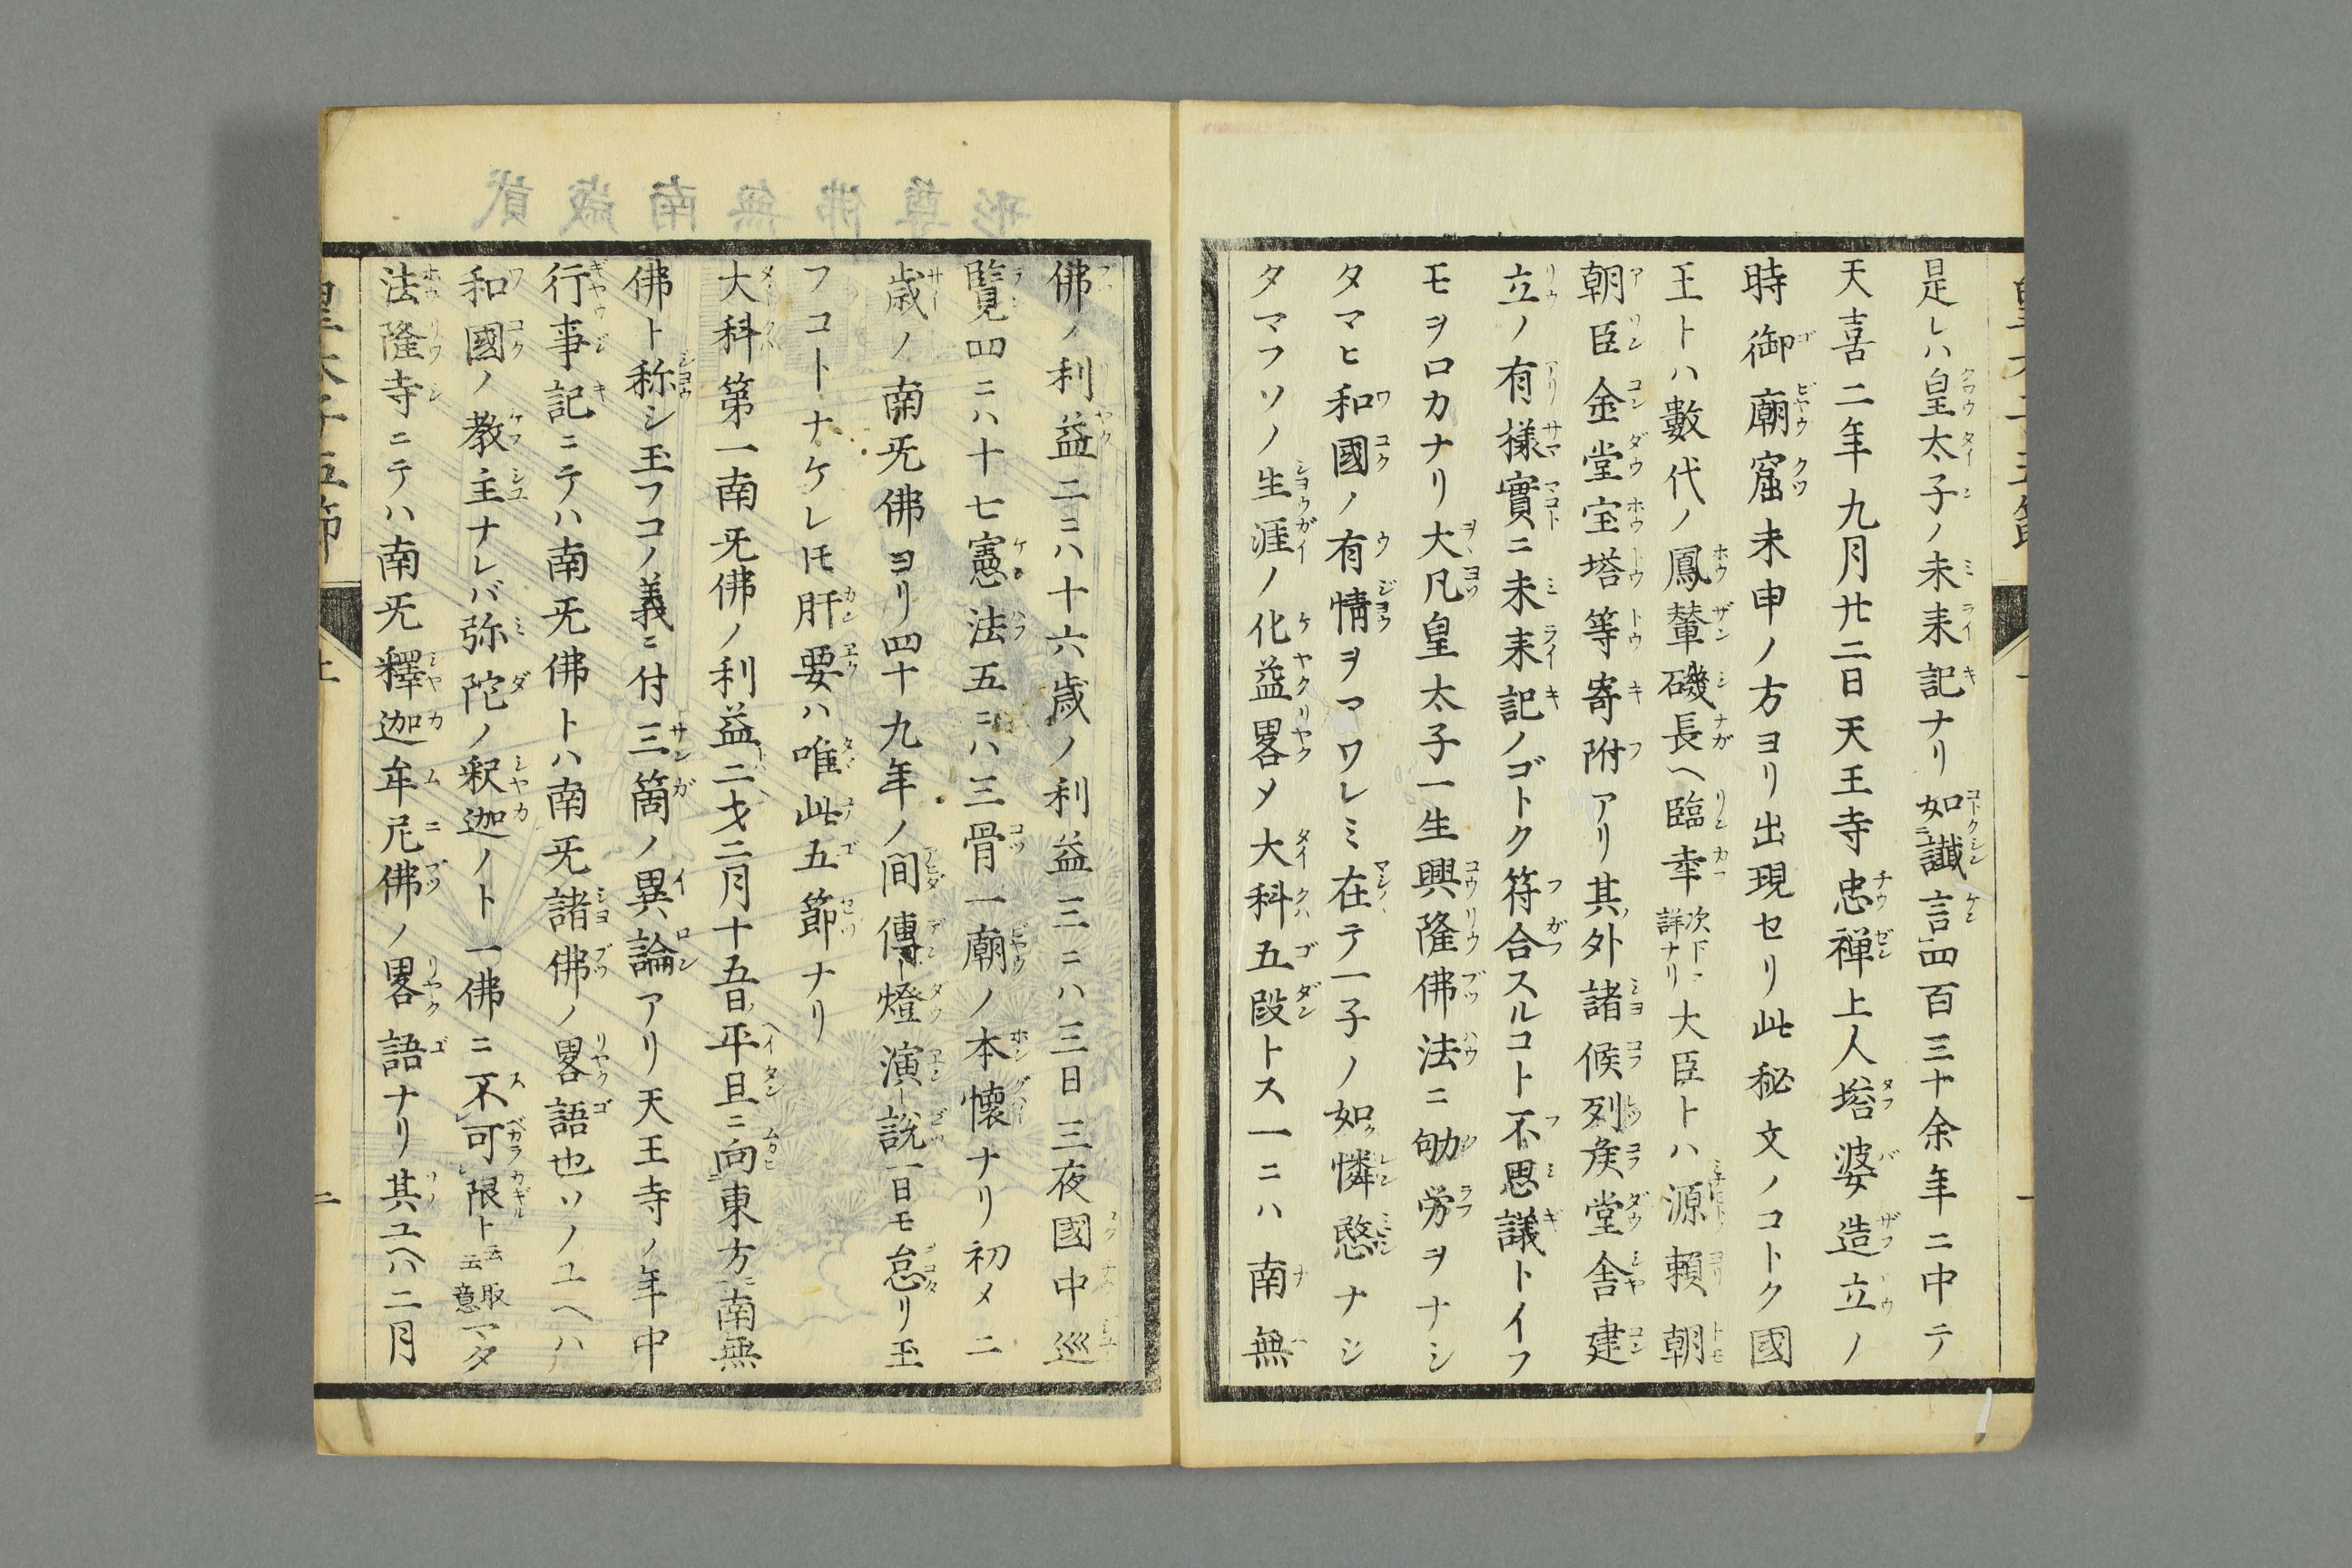 是レハ皇太子ノ未来記ナリ如讖言四百三十余年ニ中テ
天喜二年九月廿二日天王寺忠禅上人塔婆造立ノ
時御廟窟未申ノ方ヨリ出現セリ此秘文ノコトク國
王トハ數代ノ鳳輦磯長ヘ臨幸次下ニ詳ナリ大臣トハ源頼朝
朝臣金堂宝塔等寄附アリ其外諸候列矦堂舎建
立ノ有様實ニ未来記ノゴトク符合スルコト不思議トイフ
モヲロカナリ大凡皇太子一生興隆佛法ニ劬労ヲナシ
タマヒ和國ノ有情ヲマワレミ在テ一子ノ如憐愍ナシ
タマフソノ生涯ノ化益畧メ大科五段トス一ニハ南無
佛ノ利益二ニハ十六歳ノ利益三ニハ三日三夜國中巡
覧四ニハ十七憲法五ニハ三骨一廟ノ本懐ナリ初メ二
歳ノ南旡佛ヨリ四十九年ノ間傳燈演説一日モ怠リ玉
フコトナケレ𪜈肝要ハ唯此五節ナリ
大科第一南旡佛ノ利益二才二月十五日平旦ニ向東方ニ南無
佛ト称シ玉フコノ義ニ付三箇ノ異論アリ天王寺ノ年中
行事記ニテハ南旡佛トハ南旡諸佛ノ畧語也ソノユヘハ
和國ノ教主ナレバ弥陀ノ釈迦ノト一佛ニ不可限ト云云取意マタ
法隆寺ニテハ南旡釋迦牟尼佛ノ畧語ナリ其ユヘハ二月
皇太子五節
上
二
貮歳南無佛尊形